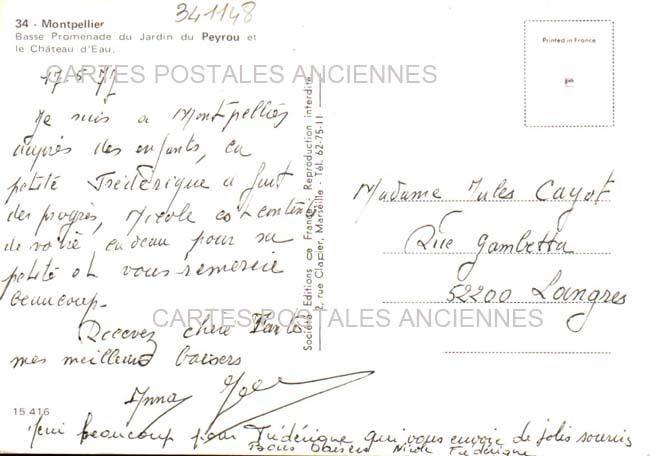 341148
34 - Montpellier
Basse Promenade du Jardin du Peyrou et
le Château d'Eau.
CARTES POSTALES ANCIENNES
17-5-77
Je suis a Montpellier
auprès des enfants, la
petite Frédérique a fait
des progrès, Nicole est contente
de votre cadeau pour sa
petite et vous remercie
beaucoup.
Recevez chère Tante
mes meilleurs baisers
Anna
15.416
Merci beaucoup pour Frédérique qui vous envoie de jolis souris
Bons Baisers Nicole Frédérique
Société Editions de France, Reproduction interdite
2, rue Clapier, Marseille - Tél. 62-75-11
Printed in France
Madame Jules Cayot
Rue Gambetta
52200 Langres
CARTES POSTALES ANCIENNES